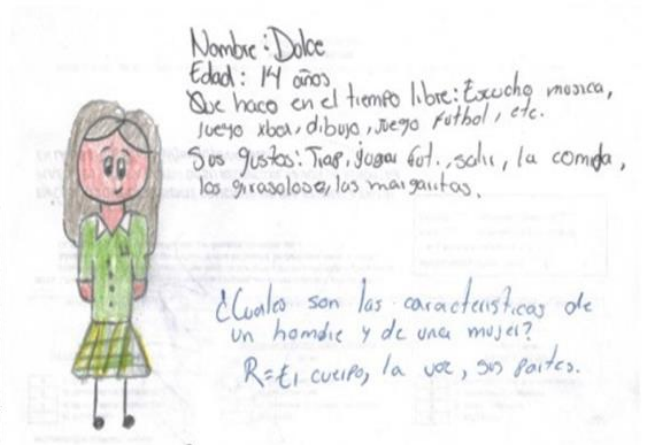 Nombre: Dolce
Edad: 14 años
Que haco en el tiempo libre: Escucho mosica,
Juego xbox, dibujo, Juego futbol, etc.
Sus gustos: Trap, jugar fut., salir, la comida,
los girasolose, las margaritas.
¿Cuales son las caracteristicas de
un hombre y de una mujer?
R= El cuerpo, la voz, sus partes.